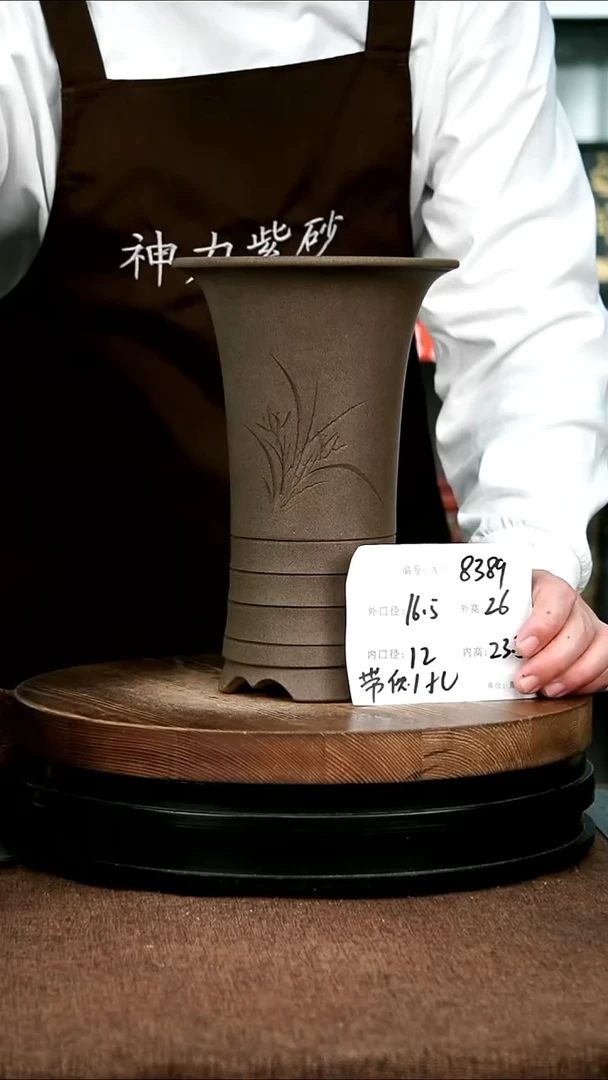 神力紫砂
编号: 8389
外口径: 16.5 外高: 26
内口径: 12 内高: 23.
单位: